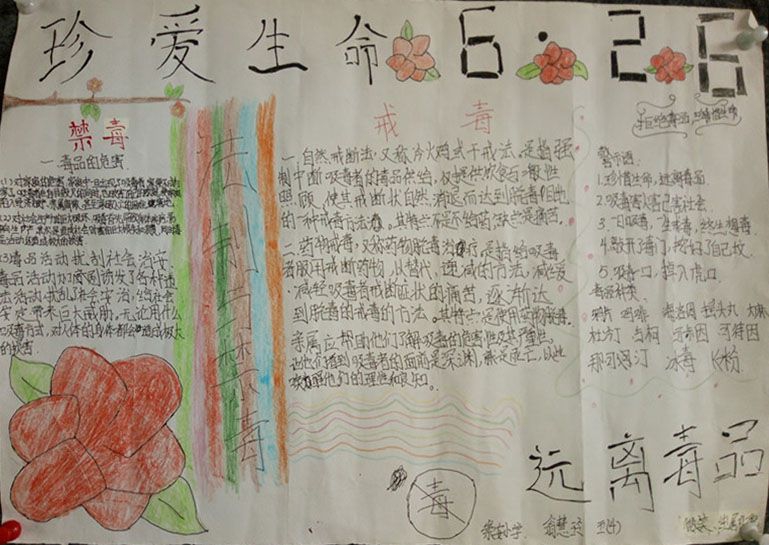 珍爱生命 6·26
拒绝毒品 珍惜生命
禁毒
一 毒品的危害
(3)毒品活动扰乱社会治安
毒品活动加剧诱发了各种违
法活动,扰乱社会安治,给社会
安定带来巨大威胁,无论用什么
吸毒方式,对人体的身体都会造成极大
的损害
法制与禁毒
戒毒
一、自然戒断法:又称冷火鸡或干戒法,是指强
制中断吸毒者的毒品供给,仅提供饮食与一般性
照顾,使其戒断状自然消退而达到脱毒目地
的一种戒毒方法。其特点是不给药,缺点是痛苦。
二、药物戒毒,又称药物脱毒治疗,是指给吸毒
者服用戒断药物,以替代、递减的方法,减缓、
减轻吸毒者戒断症状的痛苦,逐渐达
到脱毒的戒毒的方法。其特点是使用药物脱毒。
亲属应帮助他们了解吸毒的危害性及其严重性,
让他们看到吸毒者的面前是深渊,就是死亡,以此
他们的理性和良知。
警示语:
1.珍惜生命,远离毒品
2.吸毒害人害己害社会
3.一日吸毒,一生戒毒,终生想毒
4.敲开了毒门,挖好了自己坟
5.吸毒一口,掉入虎口
毒品种类:
鸦片 吗啡 海洛因 摇头丸 大麻
杜冷丁 古柯 可卡因 可待因
那可汀 冰毒 K粉
毒
远离毒品
小学 翁慧 五(4)